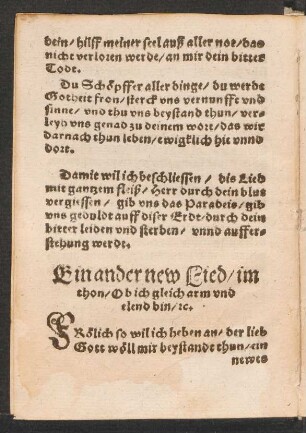 dein/ hilff meiner seel auß aller not/ das
nicht verloren werde/ an mir dein bitter
Todt.
Du Schöpffer aller dinge/ du werde
Gotheit fron/ sterck vns vernunfft vnd
sinne/ vnd thu vns beystand thun/ ver-
leyh vns genad zu deinem wort/ das wir
darnach thun leben/ ewigklich hie vnnd
dort.
Damit wil ich beschliessen/ dis Lied
mit gantzem fleiß/ Herr durch dein blut
vergiessen/ gib vns das Paradeis/ gib
vns gedult auff diser Erdt/ durch dein
bitter leiden vnd sterben/ vnnd auffer-
stehung werdt.
Ein ander new Lied/ im
thon/ Ob ich gleich arm vnd
elend bin/ ꝛc.
FRölich so wil ich heben an/ der lieb
Gott wöll mir beystandt thun/ ein
newes